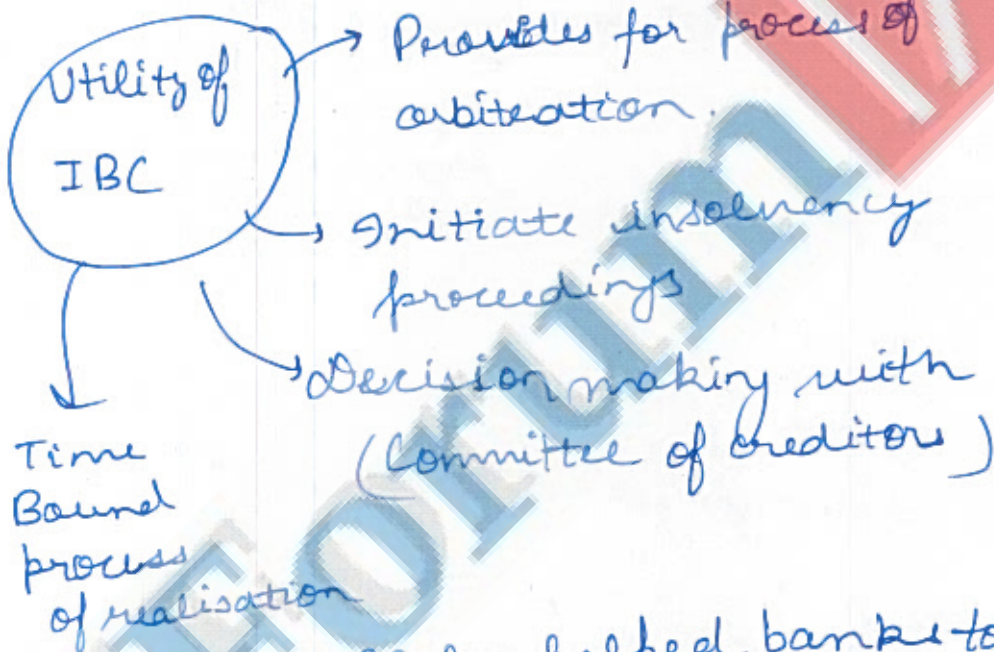 Utility of
IBC
Provides for process of
arbitration.
Initiate insolvency
proceedings
Decision making with
(Committee of creditors)
Time
Bound
process
of realisation
helped banks to
Forum